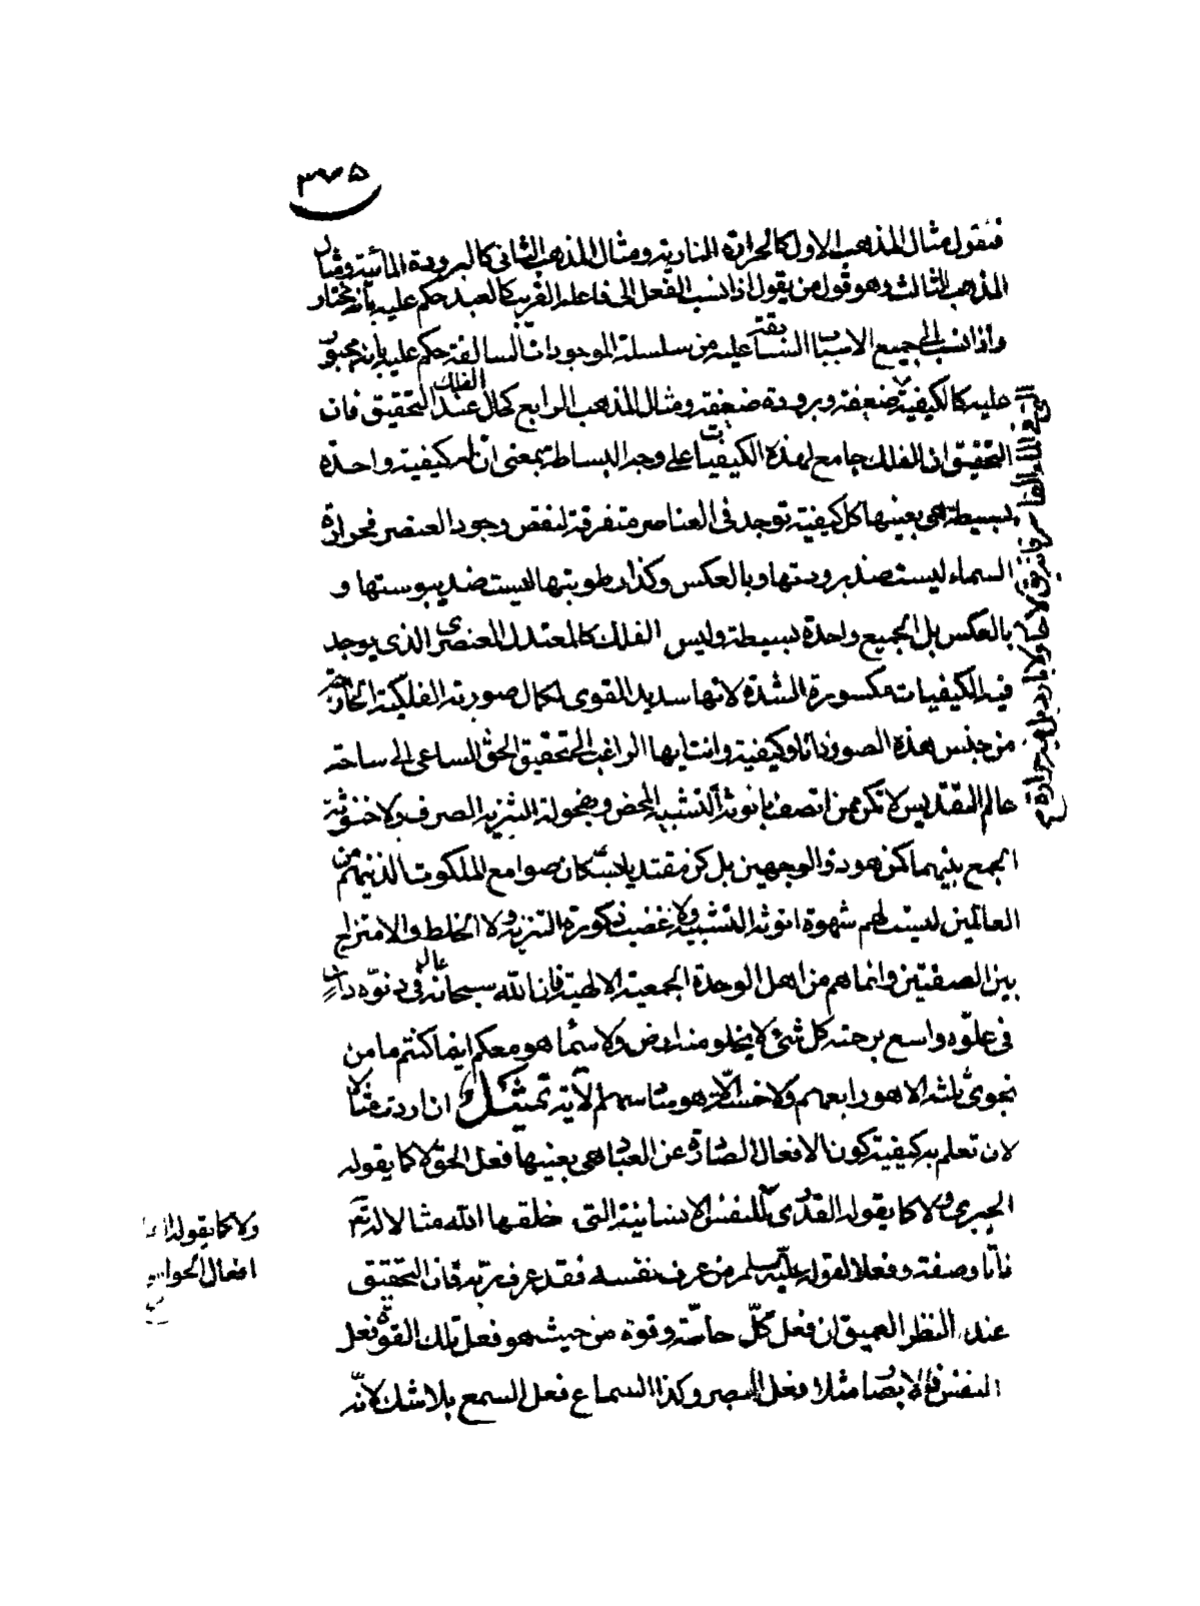 ٣٧٥
فنقول مثال المذهب الاول كالحرارة النارية ومثال المذهب الثانى كالبرودة المائية ومثال
المذهب الثالث وهو قول من يقول اذا نسب الفعل الى فاعله القريب كالعبد حكم عليه بانه مختار
واذا نسب الى جميع الاسباب السابقة عليه من سلسلة الموجودات السالفة حكم عليه بانه مجبور
عليه كالكيفية ضعيفة وبرودة ضعيفة ومثال المذهب الرابع كحال الفلك عند التحقيق فان
التحقيق ان الفلك جامع لهذه الكيفيات على وجه البساطة بمعنى ان له كيفية واحدة
بسيطة هى بعينها كل كيفية توجد فى العناصر متفرقة لنقص وجود العنصر فحرارة
السماء ليست ضد برودتها وبالعكس وكذا رطوبتها ليست ضد يبوستها و
بالعكس بل الجميع واحدة بسيطة وليس الفلك كالمعتدل العنصرى الذى يوجد
فيه الكيفيات مكسورة الشدة لانها سديد القوى لكمال صورته الفلكية
من جنس هذه الصور ذاتا وكيفية وانت ايها الراغب الى تحقيق الحق الساعى الى ساحة
عالم التقديس لا تكن ممن اتصف بانوثة التشبيه المحض وبفحولة التنزيه الصرف ولا خنوثة
الجمع بينهما كمن هو ذو الوجهين بل كن مقتديا بسكان صوامع الملكوت الذين هم من
العالين ليست لهم شهوة انوثة التشبيه ولا غضب ذكورة التنزيه ولا الخلط والامتزاج
بين الصفتين وانما هم من اهل الوحدة الجمعية الالهية فان الله سبحانه عال فى دنوه دان
فى علوه واسع برحمته كل شئ لا يخلو منه ارض ولا سماء هو معكم اينما كنتم ما من
نجوى ثلثة الا هو رابعهم ولا خمسة الا هو سادسهم الآية تمثيل ان اردت مثالا
لان تعلم به كيفية كون الافعال الصادرة عن العباد هى بعينها فعل الحق لا كما يقوله
الجبرى ولا كما يقوله القدرى النفس الانسانية التى خلقها الله مثالا له تع
ذاتا وصفة وفعلا لقوله عليه السلم من عرف نفسه فقد عرف ربه فان التحقيق
عند النظر العميق ان فعل كل حاسة وقوة من حيث هو فعل تلك القوة فعل
النفس فالابصار مثلا فعل البصر وكذا السماع فعل السمع بلا شك لانه
ولا كما يقوله
افعال الحواس